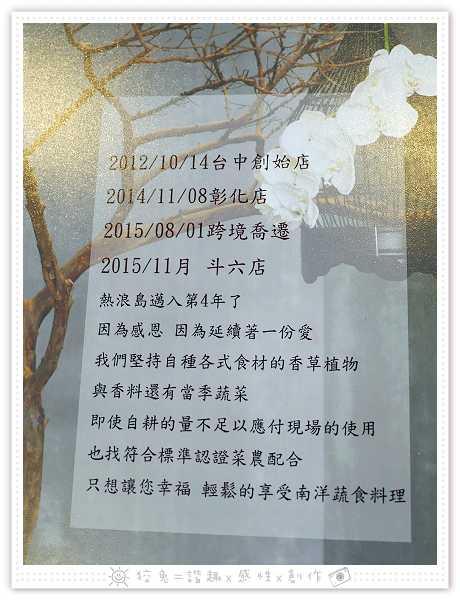 2012/10/14台中創始店
2014/11/08彰化店
2015/08/01跨境喬遷
2015/11月 斗六店
熱浪島邁入第4年了
因為感恩 因為延續著一份愛
我們堅持自種各式食材的香草植物
與香料還有當季蔬菜
即使自耕的量不足以應付現場的使用
也找符合標準認證菜農配合
只想讓您幸福 輕鬆的享受南洋蔬食料理
狡兔=諧趣x感性x創作